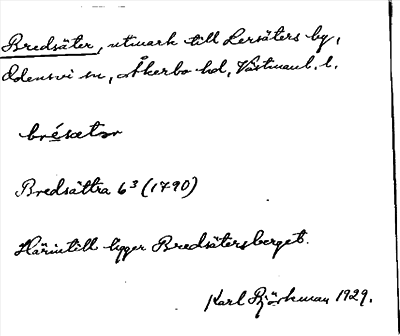 Bredsäter, utmark till Lersäters by,
Odensvi sn, Åkerbo hd, Västmanl. l.
brésætər
Bredsättra 6³ (1790)
Härintill ligger Bredsätersberget.
Karl Björkman 1929.